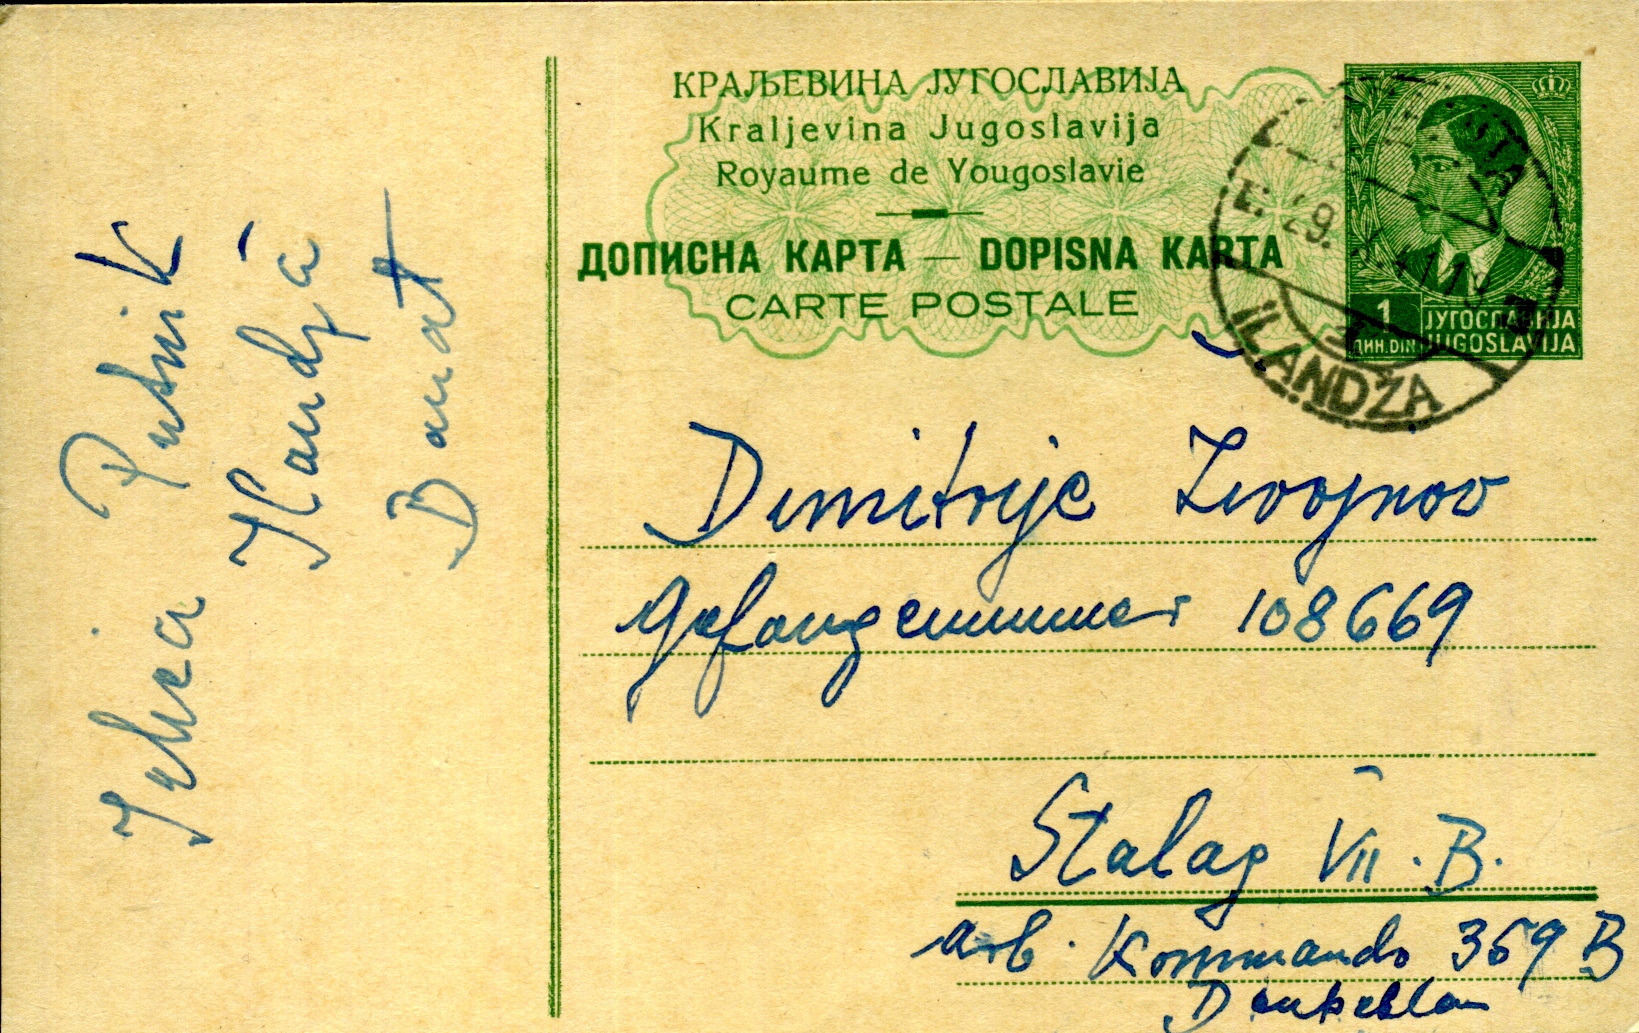 КРАЉЕВИНА ЈУГОСЛАВИЈА
Kraljevina Jugoslavija
Royaume de Yougoslavie
ДОПИСНА КАРТА — DOPISNA KARTA
CARTE POSTALE
1
ДИН. DIN
ЈУГОСЛАВИЈА
JUGOSLAVIJA
29. 41.19
ILANDŽA
Putnik
Ilandža
Banat
Dimitrije Živojnov
Gefangenummer 108669
Stalag VII. B.
Arb. Kommando 369 B